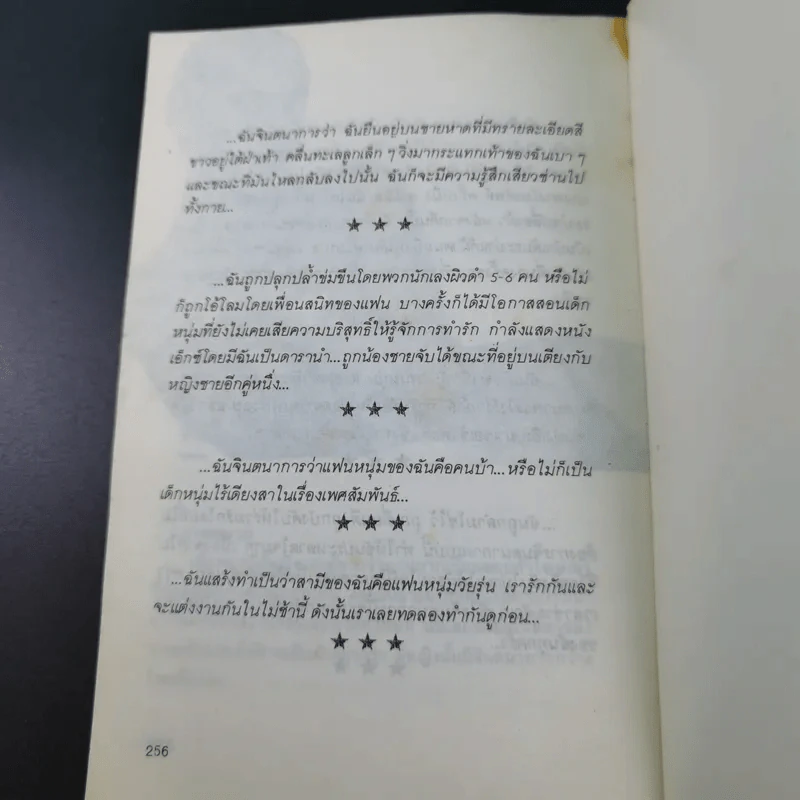 ...ฉันจินตนาการว่า ฉันยืนอยู่บนชายหาดที่มีทรายละเอียดสี
ขาวอยู่ใต้ฝ่าเท้า คลื่นทะเลลูกเล็ก ๆ วิ่งมากระแทกเท้าของฉันเบา ๆ
และขณะที่มันไหลกลับลงไปนั้น ฉันก็จะมีความรู้สึกเสียวซ่านไป
ทั้งกาย...
...ฉันถูกปลุกปล้ำข่มขืนโดยพวกนักเลงผิวดำ 5-6 คน หรือไม่
ก็ถูกโอ้โลมโดยเพื่อนสนิทของแฟน บางครั้งก็ได้มีโอกาสสอนเด็ก
หนุ่มที่ยังไม่เคยเสียความบริสุทธิ์ให้รู้จักการทำรัก กำลังแสดงหนัง
เอ็กซ์โดยมีฉันเป็นดารานำ...ถูกน้องชายจับได้ขณะที่อยู่บนเตียงกับ
หญิงชายอีกคู่หนึ่ง...
...ฉันจินตนาการว่าแฟนหนุ่มของฉันคือคนบ้า...หรือไม่ก็เป็น
เด็กหนุ่มไร้เดียงสาในเรื่องเพศสัมพันธ์...
...ฉันแสร้งทำเป็นว่าสามีของฉันคือแฟนหนุ่มวัยรุ่น เรารักกันและ
จะแต่งงานกันในไม่ช้านี้ ดังนั้นเราเลยทดลองทำกันดูก่อน...
256